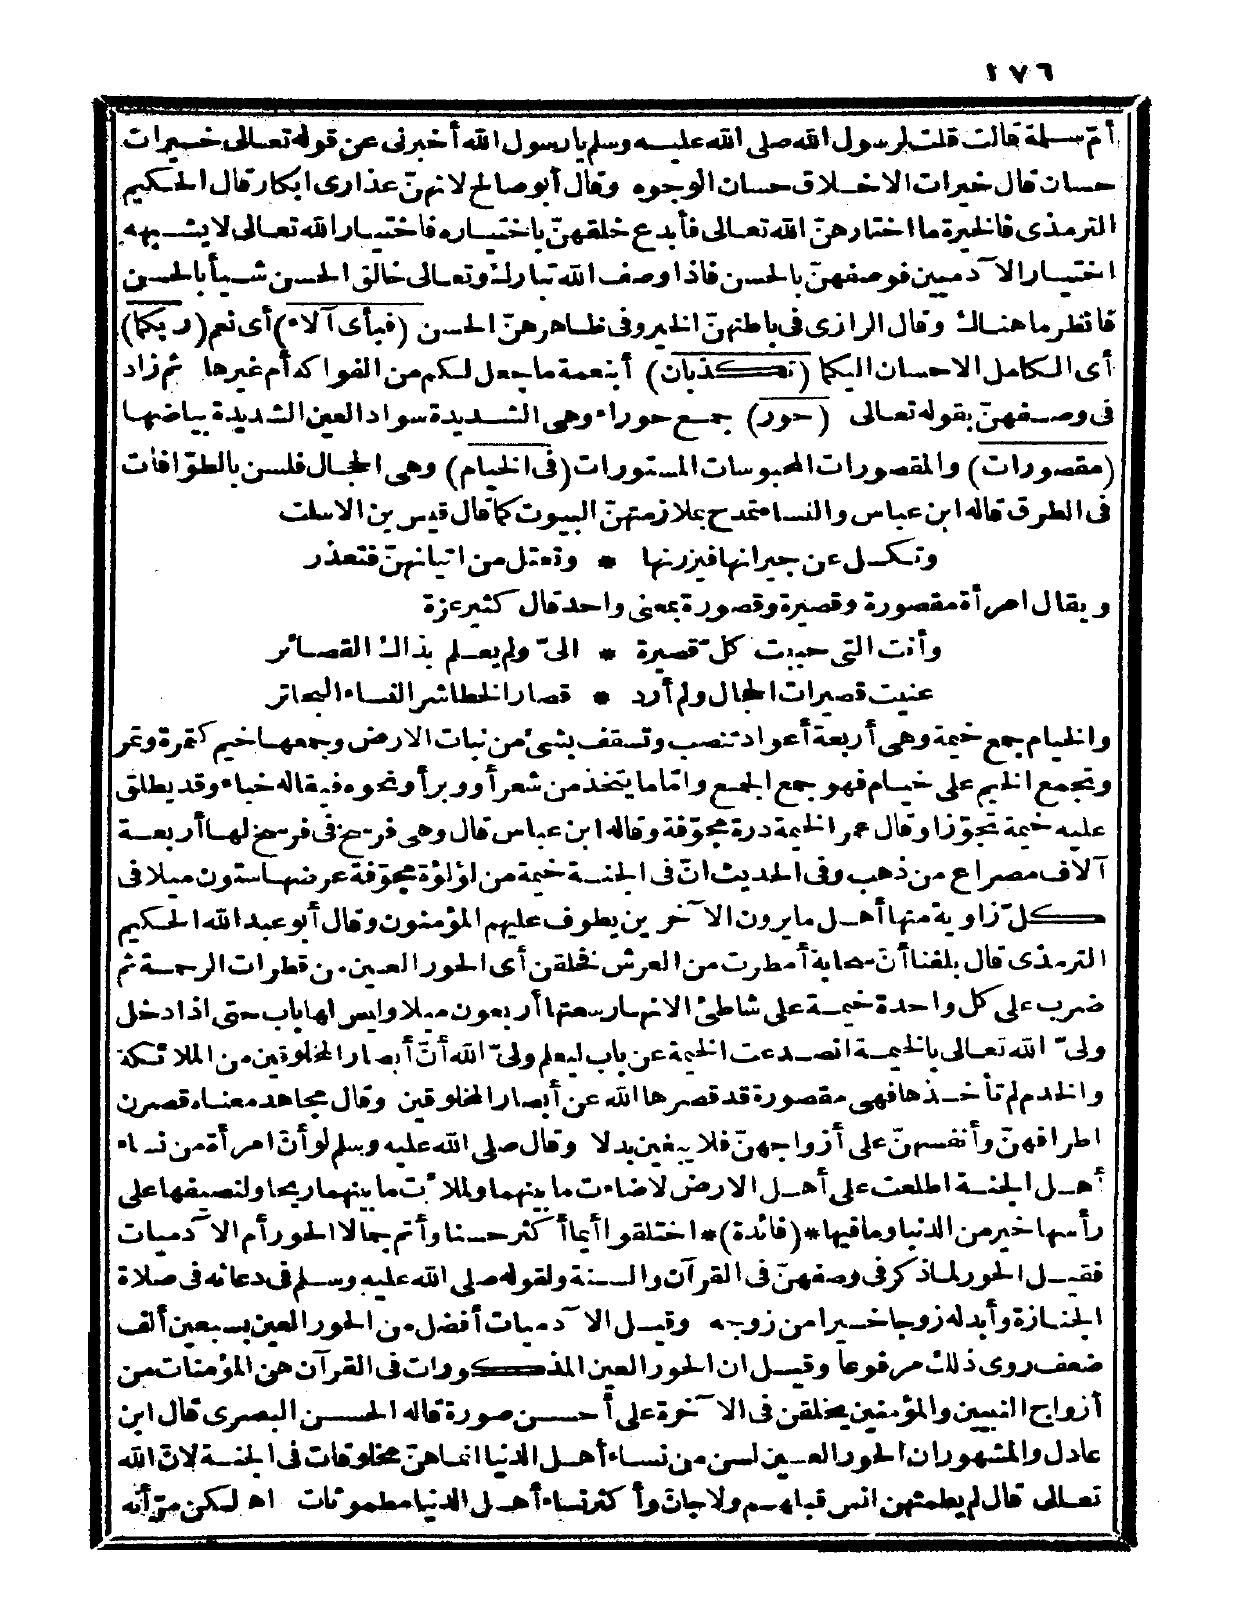 ١٧٦
أمّ سلمة قالت قلت لرسول الله صلى الله عليه وسلم يا رسول الله أخبرنى عن قوله تعالى خيرات
حسان قال خيرات الاخلاق حسان الوجوه وقال أبو صالح لانهنّ عذارى ابكار قال الحكيم
الترمذى فالخيرة ما اختارهنّ الله تعالى فأبدع خلقهنّ باختياره فاختيار الله تعالى لا يشبهه
اختيار الآدميين فوصفهنّ بالحسن فاذا وصف الله تبارك وتعالى خالق الحسن شيأ بالحسن
فانظر ما هناك وقال الرازى فى باطنهنّ الخير وفى ظاهرهنّ الحسن (فبأى آلاء) أى نعم (ربكما)
أى الكامل الاحسان اليكما (تكذبان) أبنعمة ما جعل لكم من الفواكه أم غيرها ثم زاد
فى وصفهنّ بقوله تعالى (حور) جمع حوراء وهى الشديدة سواد العين الشديدة بياضها
(مقصورات) والمقصورات المحبوسات المستورات (فى الخيام) وهى الحجال فلسن بالطوّافات
فى الطرق قاله ابن عباس والنساء تمدح بملازمتهنّ البيوت كما قال قيس بن الاسلت
وتكسل عن جيرانها فيزرنها * وتعتل من اتيانهنّ فتعذر
ويقال امرأة مقصورة وقصيرة وقصورة بمعنى واحد قال كثير عزة
وأنت التى حببت كلّ قصيرة * الىّ ولم يعلم بذاك القصائر
عنيت قصيرات الحجال ولم أرد * قصار الخطا شر النساء البحاتر
والخيام جمع خيمة وهى أربعة أعواد تنصب وتسقف بشئ من نبات الارض وجمعها خيم كتمرة وتمر
وتجمع الخيم على خيام فهو جمع الجمع وامّا ما يتخذ من شعر أو وبر أو نحوه فيقال له خباء وقد يطلق
عليه خيمة تجوّزا وقال عمر الخيمة درة مجوّفة وقاله ابن عباس قال وهى فرسخ فى فرسخ لها أربعة
آلاف مصراع من ذهب وفى الحديث انّ فى الجنة خيمة من لؤلؤة مجوّفة عرضها ستون ميلا فى
كلّ زاوية منها أهل ما يرون الآخرين يطوف عليهم المؤمنون وقال أبو عبد الله الحكيم
الترمذى قال بلغنا أنّ سحابة أمطرت من العرش فخلقن أى الحور العين من قطرات الرحمة ثم
ضرب على كل واحدة خيمة على شاطئ الانهار سعتها أربعون ميلا وليس لها باب حتى اذا دخل
ولىّ الله تعالى بالخيمة انصدعت الخيمة عن باب ليعلم ولىّ الله أنّ أبصار المخلوقين من الملائكة
والخدم لم تأخذها فهى مقصورة قد قصرها الله عن أبصار المخلوقين وقال مجاهد معناه قصرن
اطرافهنّ وأنفسهنّ على أزواجهنّ فلا يبغين بدلا وقال صلى الله عليه وسلم لو أنّ امرأة من نساء
أهل الجنة اطلعت على أهل الارض لاضاءت ما بينهما ولملأت ما بينهما ريحا ولنصيفها على
رأسها خير من الدنيا وما فيها * (فائدة) * اختلفوا أيما أكثر حسنا وأتم جمالا الحور أم الآدميات
فقيل الحور لما ذكر فى وصفهنّ فى القرآن والسنة ولقوله صلى الله عليه وسلم فى دعائه فى صلاة
الجنازة وأبدله زوجا خيرا من زوجه وقيل الآدميات أفضل من الحور العين بسبعين ألف
ضعف روى ذلك مرفوعا وقيل ان الحور العين المذكورات فى القرآن هن المؤمنات من
أزواج النبيين والمؤمنين يخلقن فى الآخرة على أحسن صورة قاله الحسن البصرى قال ابن
عادل والمشهور ان الحور العين لسن من نساء أهل الدنيا انما هنّ مخلوقات فى الجنة لانّ الله
تعالى قال لم يطمثهن انس قبلهم ولا جان وأكثر نساء أهل الدنيا مطموثات اهـ لكن مرّ أنه